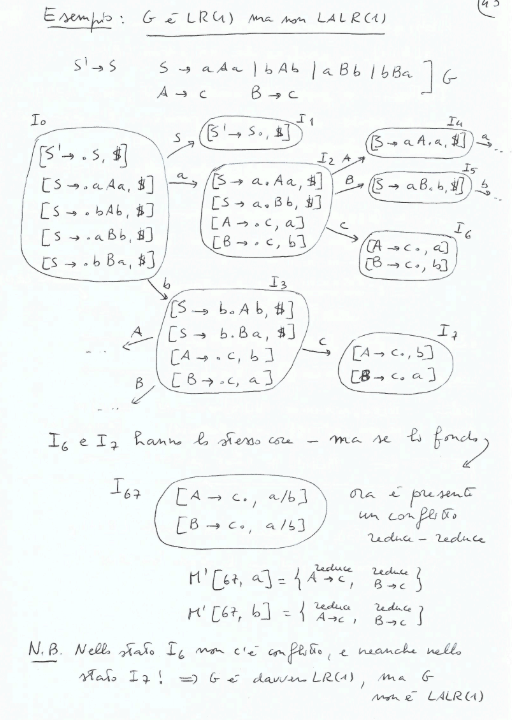 Esempio: G è LR(1) ma non LALR(1)
S' → S   S → aAa | bAb | aBb | bBa ] G
A → c   B → c
I0
[S' → .S, $]
[S → .aAa, $]
[S → .bAb, $]
[S → .aBb, $]
[S → .bBa, $]
S
I1
[S' → S., $]
a
I2
[S → a.Aa, $]
[S → a.Bb, $]
[A → .c, a]
[B → .c, b]
A
I4
[S → aA.a, $] a ...
B
I5
[S → aB.b, $] b ...
c
I6
[A → c., a]
[B → c., b]
b
I3
[S → b.Ab, $]
[S → b.Ba, $]
[A → .c, b]
[B → .c, a]
A
...
B
...
c
I7
[A → c., b]
[B → c. a]
I6 e I7 hanno lo stesso core – ma se li fondo,
I67
[A → c., a/b]
[B → c., a/b]
ora è presente
un conflitto
reduce – reduce
M'[67, a] = { reduce A→c, reduce B→c }
M'[67, b] = { reduce A→c, reduce B→c }
N.B. Nello stato I6 non c'è conflitto, e neanche nello
stato I7! ⇒ G è davvero LR(1), ma G
non è LALR(1)